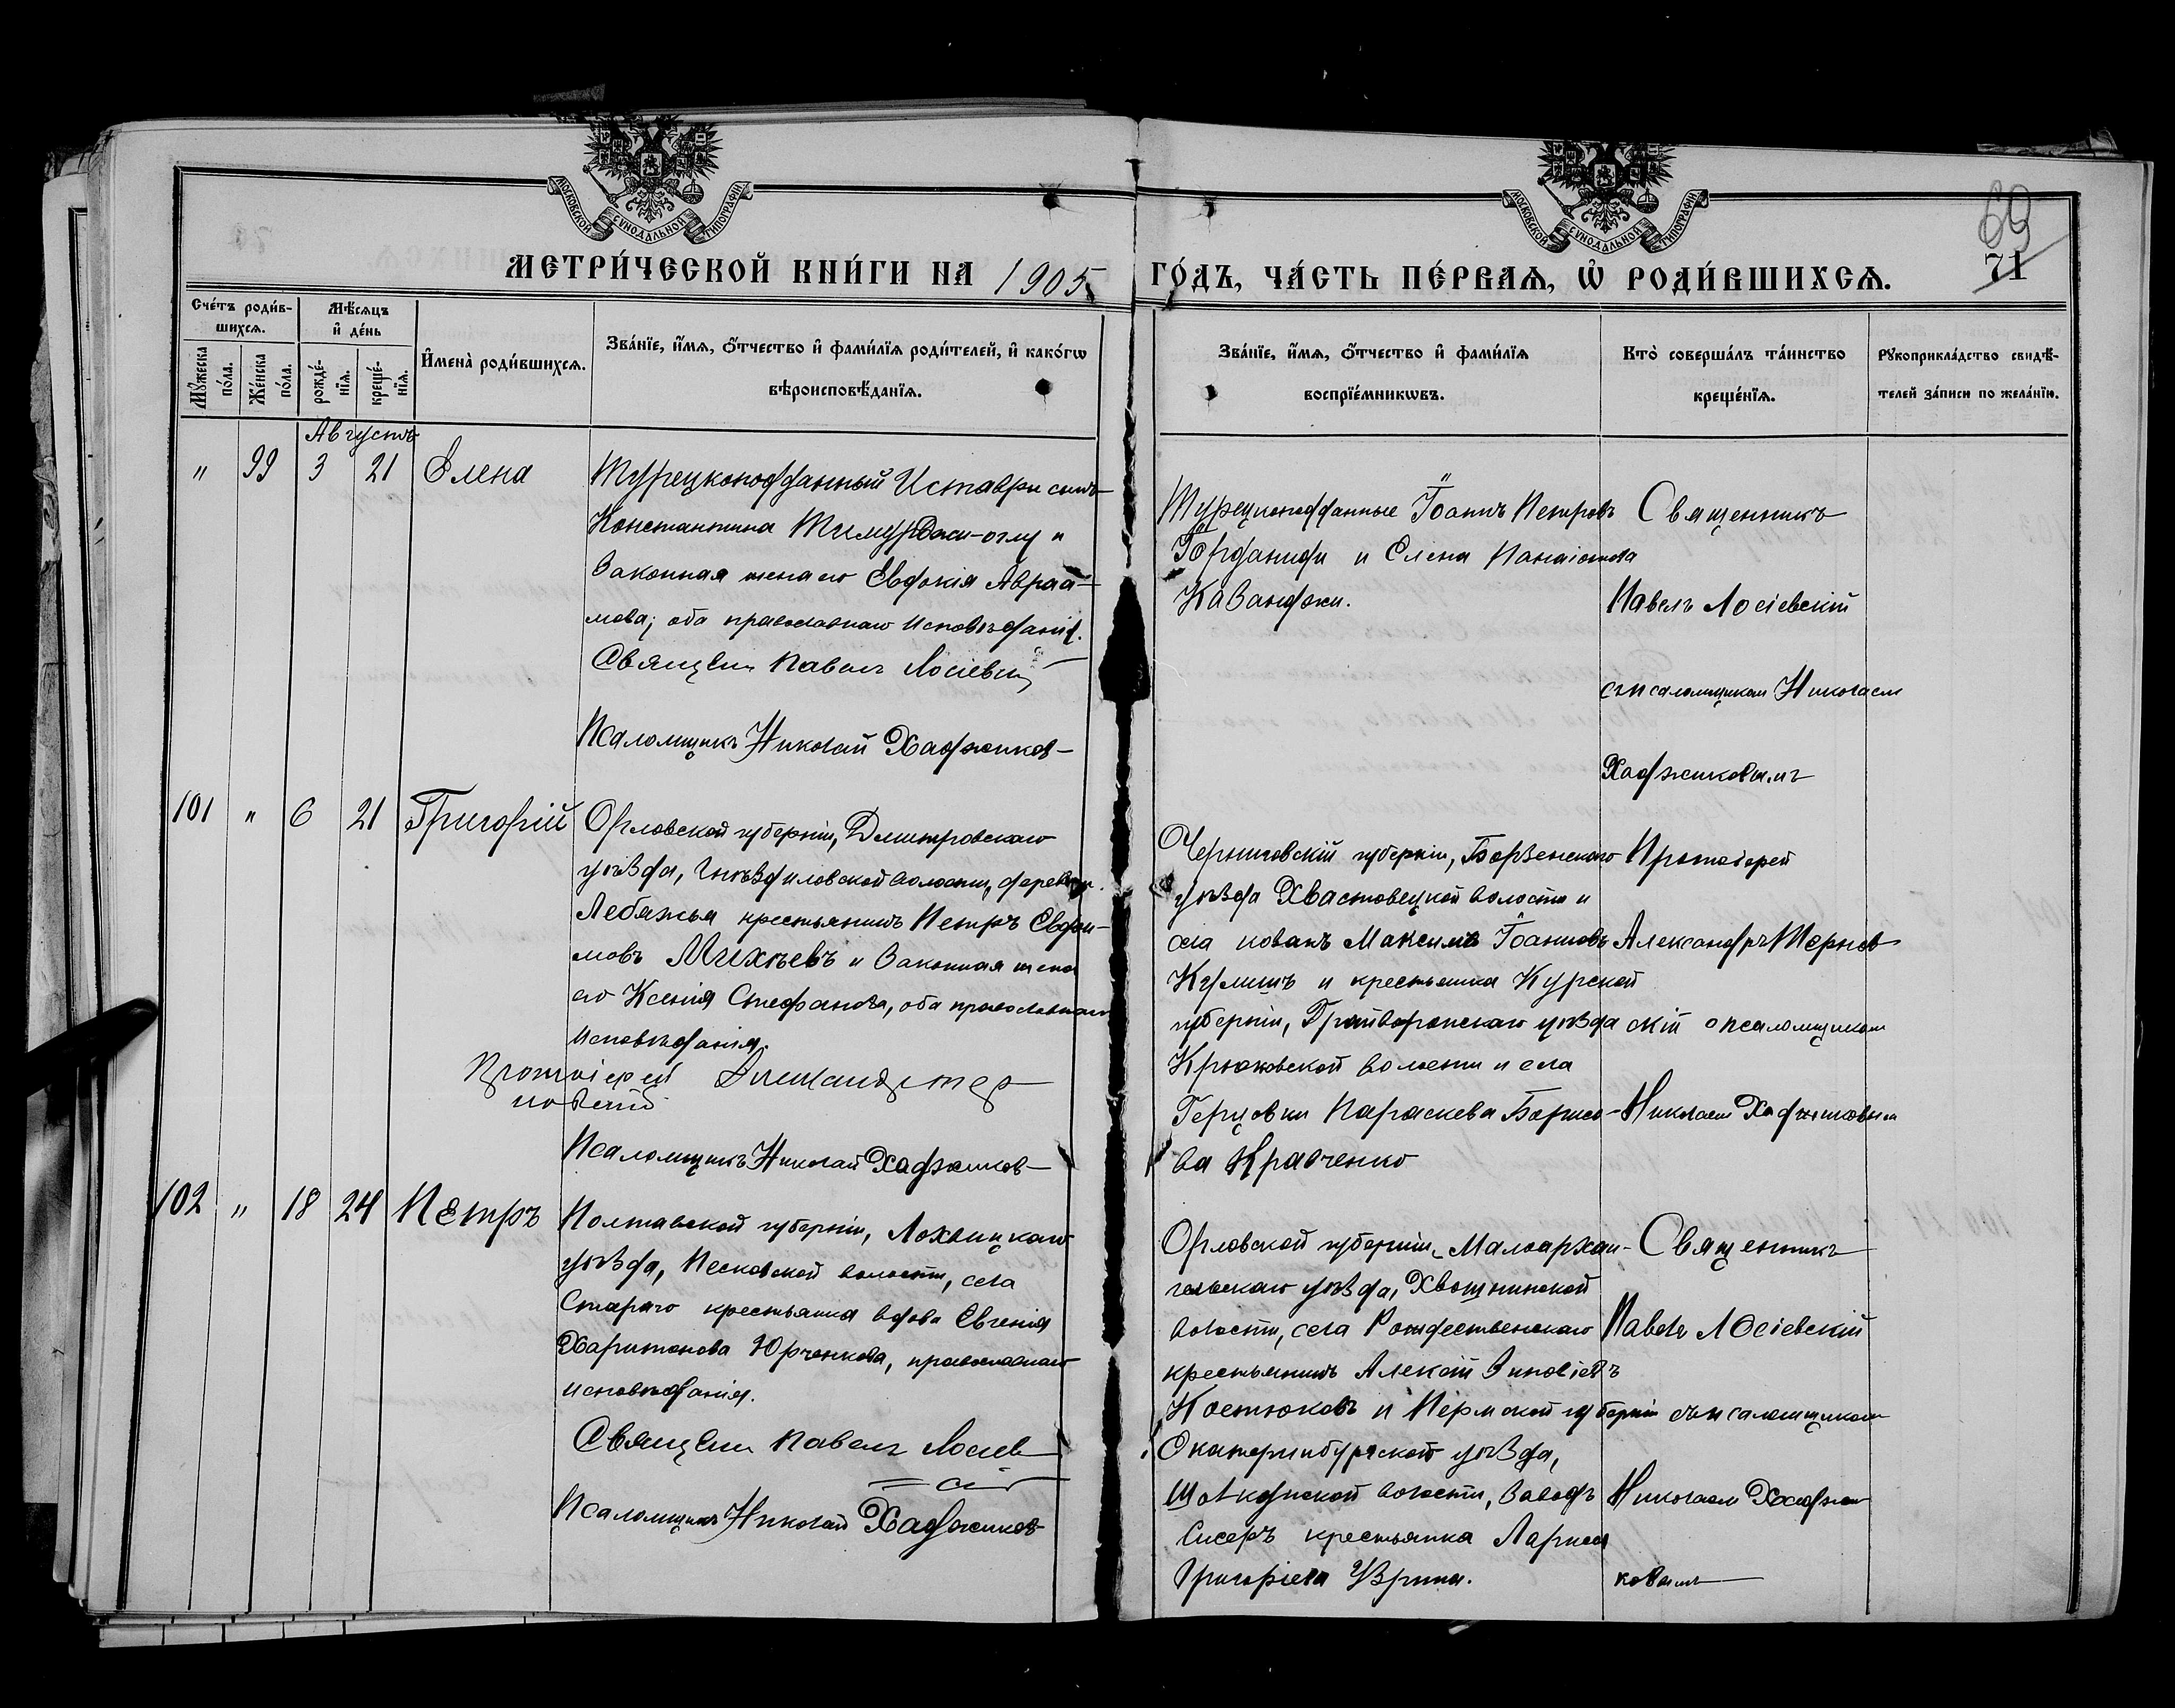 МОСКОВСКОЙ СУНОДАЛЬНОЙ ТИПОГРАФІИ
МОСКОВСКОЙ СУНОДАЛЬНОЙ ТИПОГРАФІИ
69
71
МЕТРИ́ЧЕСКОЙ КНИ́ГИ НА 1905 ГО́ДЪ, ЧА́СТЬ ПЕ́РВАѦ, Ѡ҆ РОДИ́ВШИХСѦ.
Сче́тъ роди́в-
шихсѧ.
Мꙋ́жеска по́ла.
Же́нска по́ла.
Мѣ́сѧцъ
и҆ де́нь
рожде́-
нїѧ.
креще́-
нїѧ.
И҆мена̀ роди́вшихсѧ.
Зва́нїе, и҆́мѧ, ѻ҆́тчество и҆ фами́лїѧ роди́телей, и҆ како́гѡ
вѣроисповѣ́данїѧ.
Зва́нїе, и҆́мѧ, ѻ҆́тчество и҆ фами́лїѧ
воспрїе́мникѡвъ.
Кто̀ соверша́лъ та́инство
креще́нїѧ.
Рꙋкоприкла́дство свидѣ́-
телей за́писи по жела́нїю.
Августъ
" 99 3 21 Елена
Турецкоподданный Иставри сынъ
Константина Тимурджи-оглу и
законная жена его Евдокія Авраа-
мова; оба православнаго исповѣданія.
Священ Павелъ Лосіевскій
Псаломщикъ Николай Хаджиковъ
Турецкоподданные Іоаннъ Петровъ
Іорданиди и Елена Панаіотова
Каванджи.
Священникъ
Павелъ Лосіевскій
съ псаломщикомъ Николаемъ
Хаджиковымъ
101 " 6 21 Григорій
Орловской губерніи, Дмитровскаго
уѣзда, Гнѣздиловской волости, деревни
Лебяжья крестьянинъ Петръ Евфи-
мовъ Михѣевъ и законная жена
его Ксенія Стефанова, оба православнаго
исповѣданія.
Протоіерей Александръ Тер
новскій
Псаломщикъ Николай Хаджиковъ
Черниговскій губерніи, Борзенскаго
уѣзда Хвастовецкой волости и
села козакъ Максимъ Іоанновъ
Кулишъ и крестьянка Курской
губерніи, Грайворонскаго уѣзда
Крюковской волости и села
Герцовки Параскева Борисо-
ва Кравченко
Протоіерей
Александръ Тернов
скій с псаломщикомъ
Николаемъ Хаджиковымъ
102 " 18 24 Петръ
Полтавской губерніи, Лохвицкаго
уѣзда, Песковской волости, села
Стараго крестьянка вдова Евгенія
Харитонова Юрченкова, православнаго
исповѣданія.
Священ Павелъ Лосіев
скій
Псаломщикъ Николай Хаджиковъ
Орловской губерніи, Малоархан-
гельскаго уѣзда, Хвощнинской
волости, села Рождественскаго
крестьянинъ Алексій Зиновіевъ
Костюковъ и Пермской губерніи
Екатеринбургскаго уѣзда,
волости, заводъ
крестьянка Лариса
Григоріева
Священникъ
Павелъ Лосіевскій
съ псаломщикомъ
Николаемъ Хаджи
ковымъ